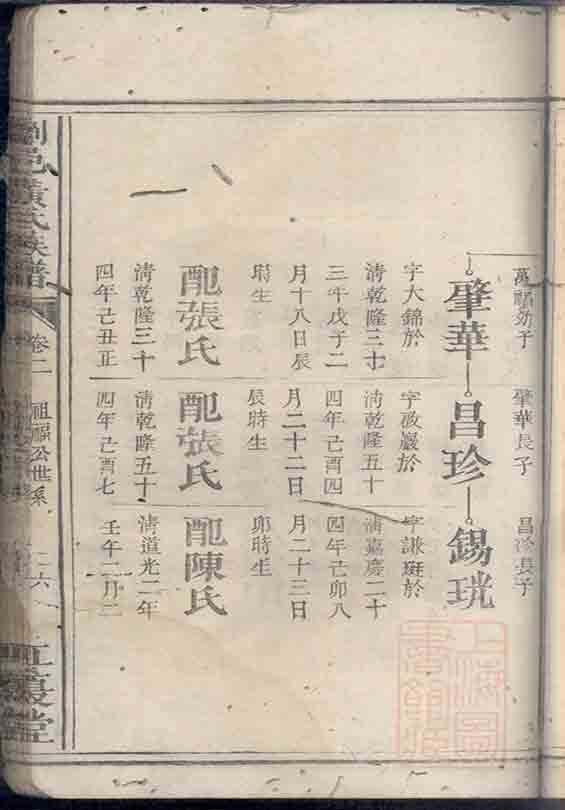 萬福幼子
肇華
字大錦於
清乾隆三十
三年戊子二
月十八日辰
時生
配張氏
清乾隆三十
四年己丑正
肇華長子
昌珍
字啟嚴於
清乾隆五十
四年己酉四
月二十二日
辰時生
配張氏
清乾隆五十
四年己酉七
昌珍長子
錫珖
字謙珽於
清嘉慶二十
四年己卯八
月二十三日
卯時生
配陳氏
清道光二年
壬午二月二
瀏邑黃氏族譜
卷二
祖福公世系
二六
江夏堂
上海圖
書館藏